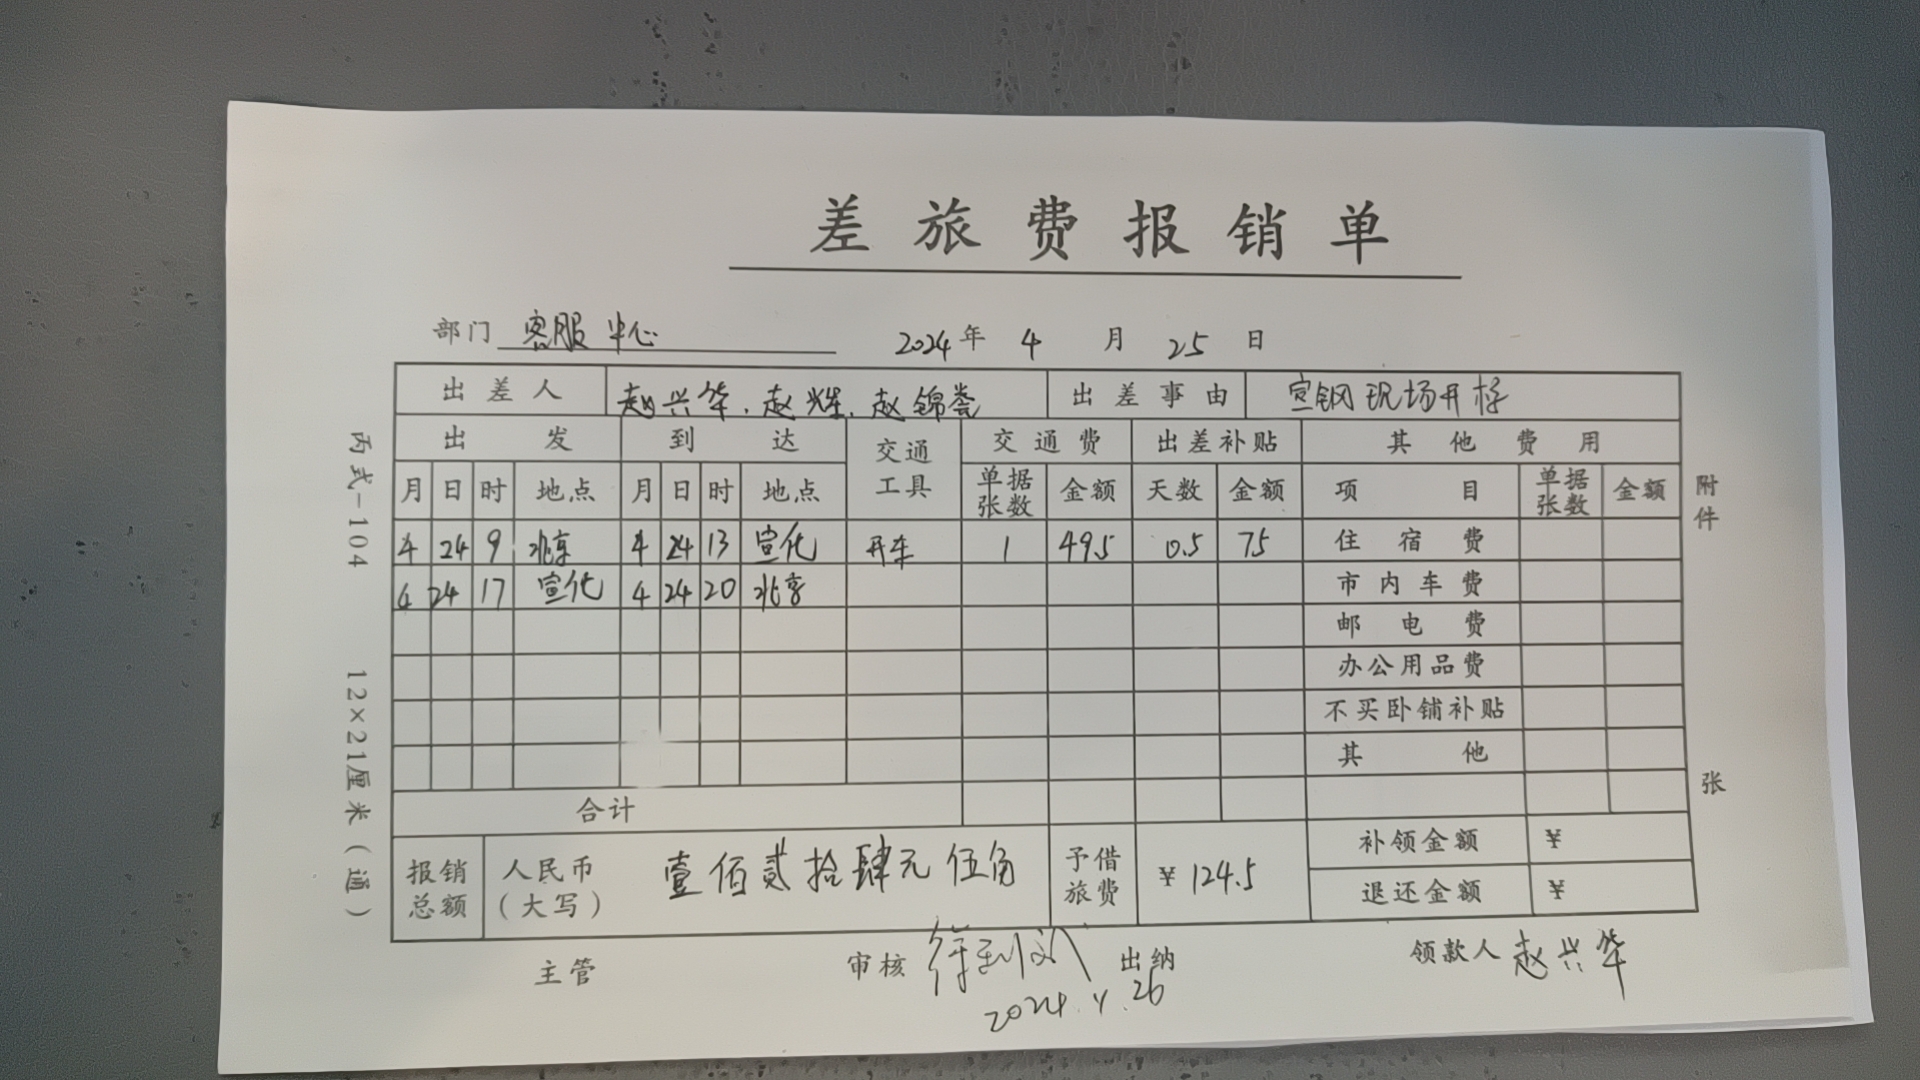 差旅费报销单
部门 客服中心 2024年 4月 25日
出差人 赵兴华、赵辉、赵锦荟 出差事由 宣钢现场开标
出发 到达 交通工具 交通费 出差补贴 其他费用
月 日 时 地点 月 日 时 地点 单据张数 金额 天数 金额 项目 单据张数 金额
4 24 9 北京 4 24 13 宣化 开车 1 49.5 0.5 75 住宿费
4 24 17 宣化 4 24 20 北京 市内车费
邮电费
办公用品费
不买卧铺补贴
其他
合计
报销总额 人民币（大写） 壹佰贰拾肆元伍角 予借旅费 ¥124.5 补领金额 ¥
退还金额 ¥
主管 审核 出纳 领款人 赵兴华
2024.4.26
丙式-104 12×21厘米（通）
附件 张